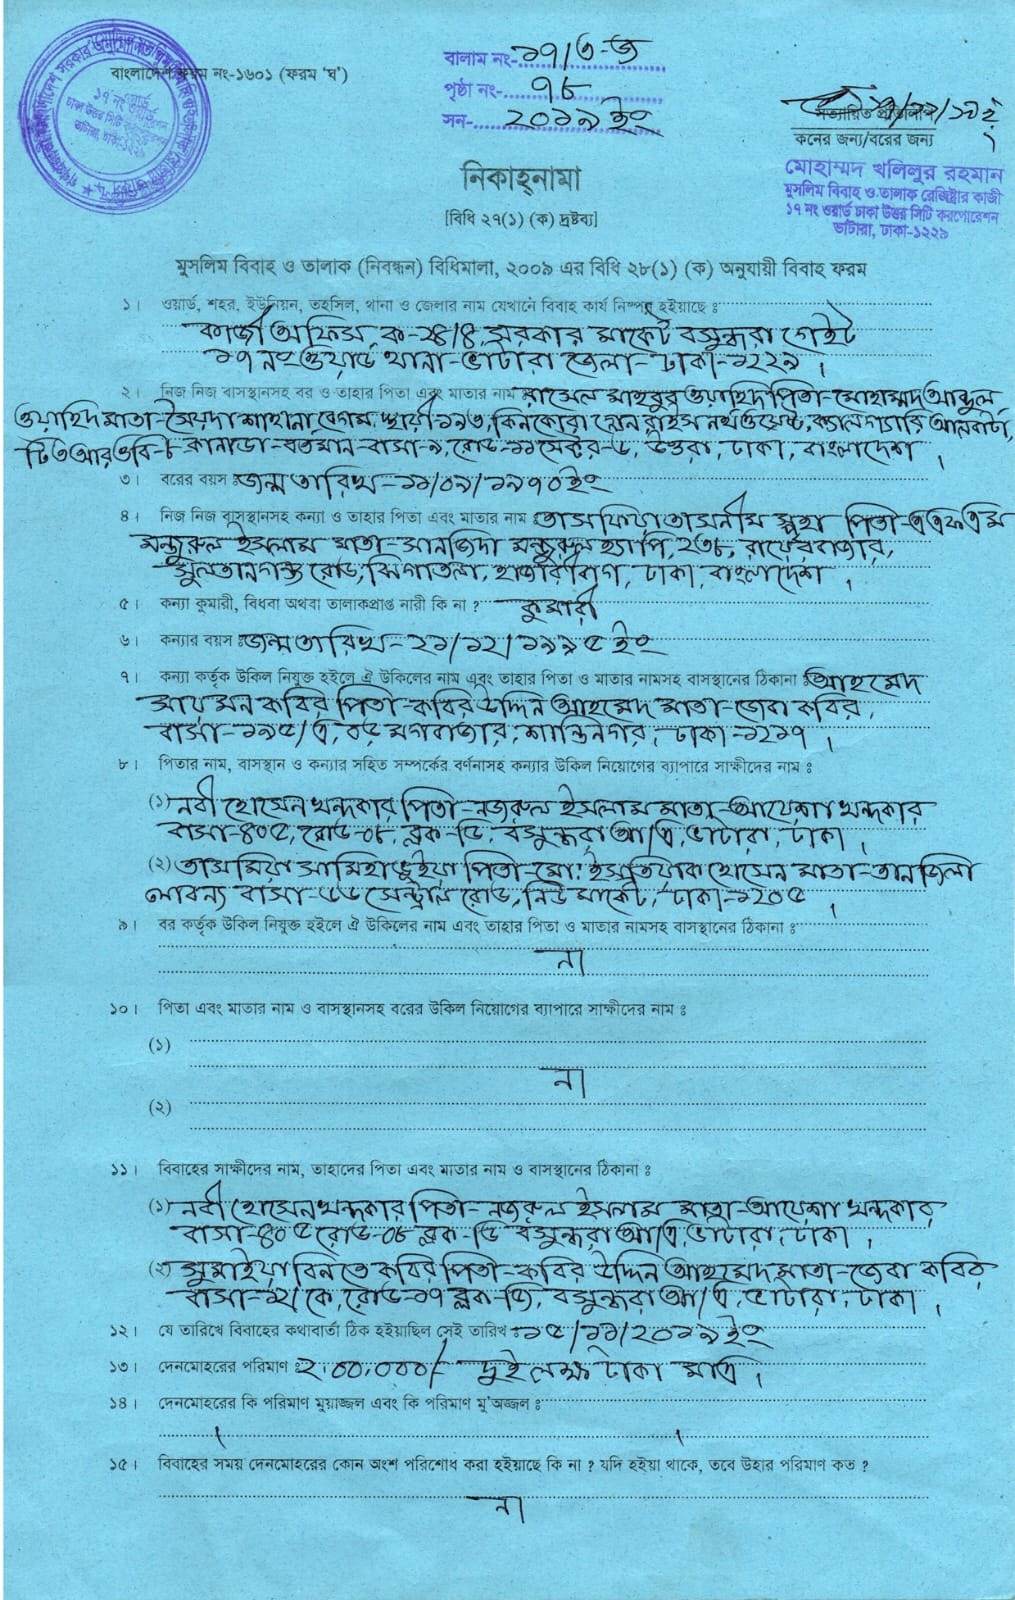 বাংলাদেশ ফরম নং-১৬০১ (ফরম ‘ঘ’)
বালাম নং-১৭/৩-জ
পৃষ্ঠা নং-৭৮
সন-২০১৯ইং
১৭ নং ওয়ার্ড
ঢাকা উত্তর সিটি কর্পোরেশন
ভাটারা, ঢাকা-১২২৯
সত্যায়িত প্রতিলিপি
কনের জন্য/বরের জন্য
মোহাম্মদ খলিলুর রহমান
মুসলিম বিবাহ ও তালাক রেজিষ্ট্রার কাজী
১৭ নং ওয়ার্ড ঢাকা উত্তর সিটি করপোরেশন
ভাটারা, ঢাকা-১২২৯
নিকাহ্‌নামা
[বিধি ২৭(১) (ক) দ্রষ্টব্য]
মুসলিম বিবাহ ও তালাক (নিবন্ধন) বিধিমালা, ২০০৯ এর বিধি ২৮(১) (ক) অনুযায়ী বিবাহ ফরম
১। ওয়ার্ড, শহর, ইউনিয়ন, তহসিল, থানা ও জেলার নাম যেখানে বিবাহ কার্য নিষ্পন্ন হইয়াছে ঃ
কাজী অফিস, ক-২৪/৪, সরকার মার্কেট বসুন্ধরা গেইট
১৭ নং ওয়ার্ড থানা-ভাটারা জেলা- ঢাকা-১২২৯।
২। নিজ নিজ বাসস্থানসহ বর ও তাহার পিতা এবং মাতার নাম রাসেল মাহবুব ওয়াহিদ পিতা-মোহাম্মদ আব্দুল
ওয়াহিদ মাতা-সৈয়দা শাহানা বেগম, স্থায়ী-১৯৩, কিনকোরা গ্লেন রাইস নর্থ ওয়েষ্ট, ক্যালগ্যারি আলবার্টা,
টি৩আর ওবি-৮ কানাডা-বর্তমান-বাসা-৯, রোড-১১ সেক্টর-৬, উত্তরা, ঢাকা, বাংলাদেশ।
৩। বরের বয়স ঃ জন্ম তারিখ-১১/০৯/১৯৭০ইং
৪। নিজ নিজ বাসস্থানসহ কন্যা ও তাহার পিতা এবং মাতার নাম ঃ তাসফিয়া তাসনীম স্পৃহা পিতা-এএফএম
মন্জুরুল ইসলাম মাতা-সানজিদা মন্জুরুল হ্যাপি, ২৩৮, রায়ের বাজার,
সুলতানগঞ্জ রোড, ঝিগাতলা, হাজারিবাগ, ঢাকা, বাংলাদেশ।
৫। কন্যা কুমারী, বিধবা অথবা তালাকপ্রাপ্ত নারী কি না ? কুমারী
৬। কন্যার বয়স ঃ জন্ম তারিখ-২১/১২/১৯৯৫ইং
৭। কন্যা কর্তৃক উকিল নিযুক্ত হইলে ঐ উকিলের নাম এবং তাহার পিতা ও মাতার নামসহ বাসস্থানের ঠিকানা ঃ আহমেদ
সায়মন কবির পিতা-কবির উদ্দিন আহমেদ মাতা-জেবা কবির,
বাসা-১৯৫/এ, বড় মগবাজার, শান্তিনগর, ঢাকা-১২১৭।
৮। পিতার নাম, বাসস্থান ও কন্যার সহিত সম্পর্কের বর্ণনাসহ কন্যার উকিল নিয়োগের ব্যাপারে সাক্ষীদের নাম ঃ
(১) নবী হোসেন খন্দকার পিতা-নজরুল ইসলাম মাতা-আয়েশা খন্দকার
বাসা-৪০৫, রোড-০৮, ব্লক-ডি, বসুন্ধরা আ/এ, ভাটারা, ঢাকা।
(২) তাসমিয়া সামিহা ভুইয়া পিতা-মো: ইসতিয়াক হোসেন মাতা-তানজিলা
লাবন্য বাসা-৬৬ সেন্ট্রাল রোড, নিউ মার্কেট, ঢাকা-১২০৫।
৯। বর কর্তৃক উকিল নিযুক্ত হইলে ঐ উকিলের নাম এবং তাহার পিতা ও মাতার নামসহ বাসস্থানের ঠিকানা ঃ
না
১০। পিতা এবং মাতার নাম ও বাসস্থানসহ বরের উকিল নিয়োগের ব্যাপারে সাক্ষীদের নাম ঃ
(১)
না
(২)
১১। বিবাহের সাক্ষীদের নাম, তাহাদের পিতা এবং মাতার নাম ও বাসস্থানের ঠিকানা ঃ
(১) নবী হোসেন খন্দকার পিতা-নজরুল ইসলাম মাতা-আয়েশা খন্দকার
বাসা-৪০৫ রোড-০৮ ব্লক-ডি বসুন্ধরা আ/এ, ভাটারা, ঢাকা।
(২) সুমাইয়া বিনতে কবির পিতা-কবির উদ্দিন আহমেদ মাতা-জেবা কবির
বাসা-১২/কে, রোড-১৭ ব্লক-জি, বসুন্ধরা আ/এ, ভাটারা, ঢাকা।
১২। যে তারিখে বিবাহের কথাবার্তা ঠিক হইয়াছিল সেই তারিখ ঃ ১৫/১১/২০১৯ইং
১৩। দেনমোহরের পরিমাণ ঃ ২,০০,০০০/- দুই লক্ষ টাকা মাত্র।
১৪। দেনমোহরের কি পরিমাণ মুয়াজ্জল এবং কি পরিমাণ মু'অজ্জল ঃ
১৫। বিবাহের সময় দেনমোহরের কোন অংশ পরিশোধ করা হইয়াছে কি না ? যদি হইয়া থাকে, তবে উহার পরিমাণ কত ?
না